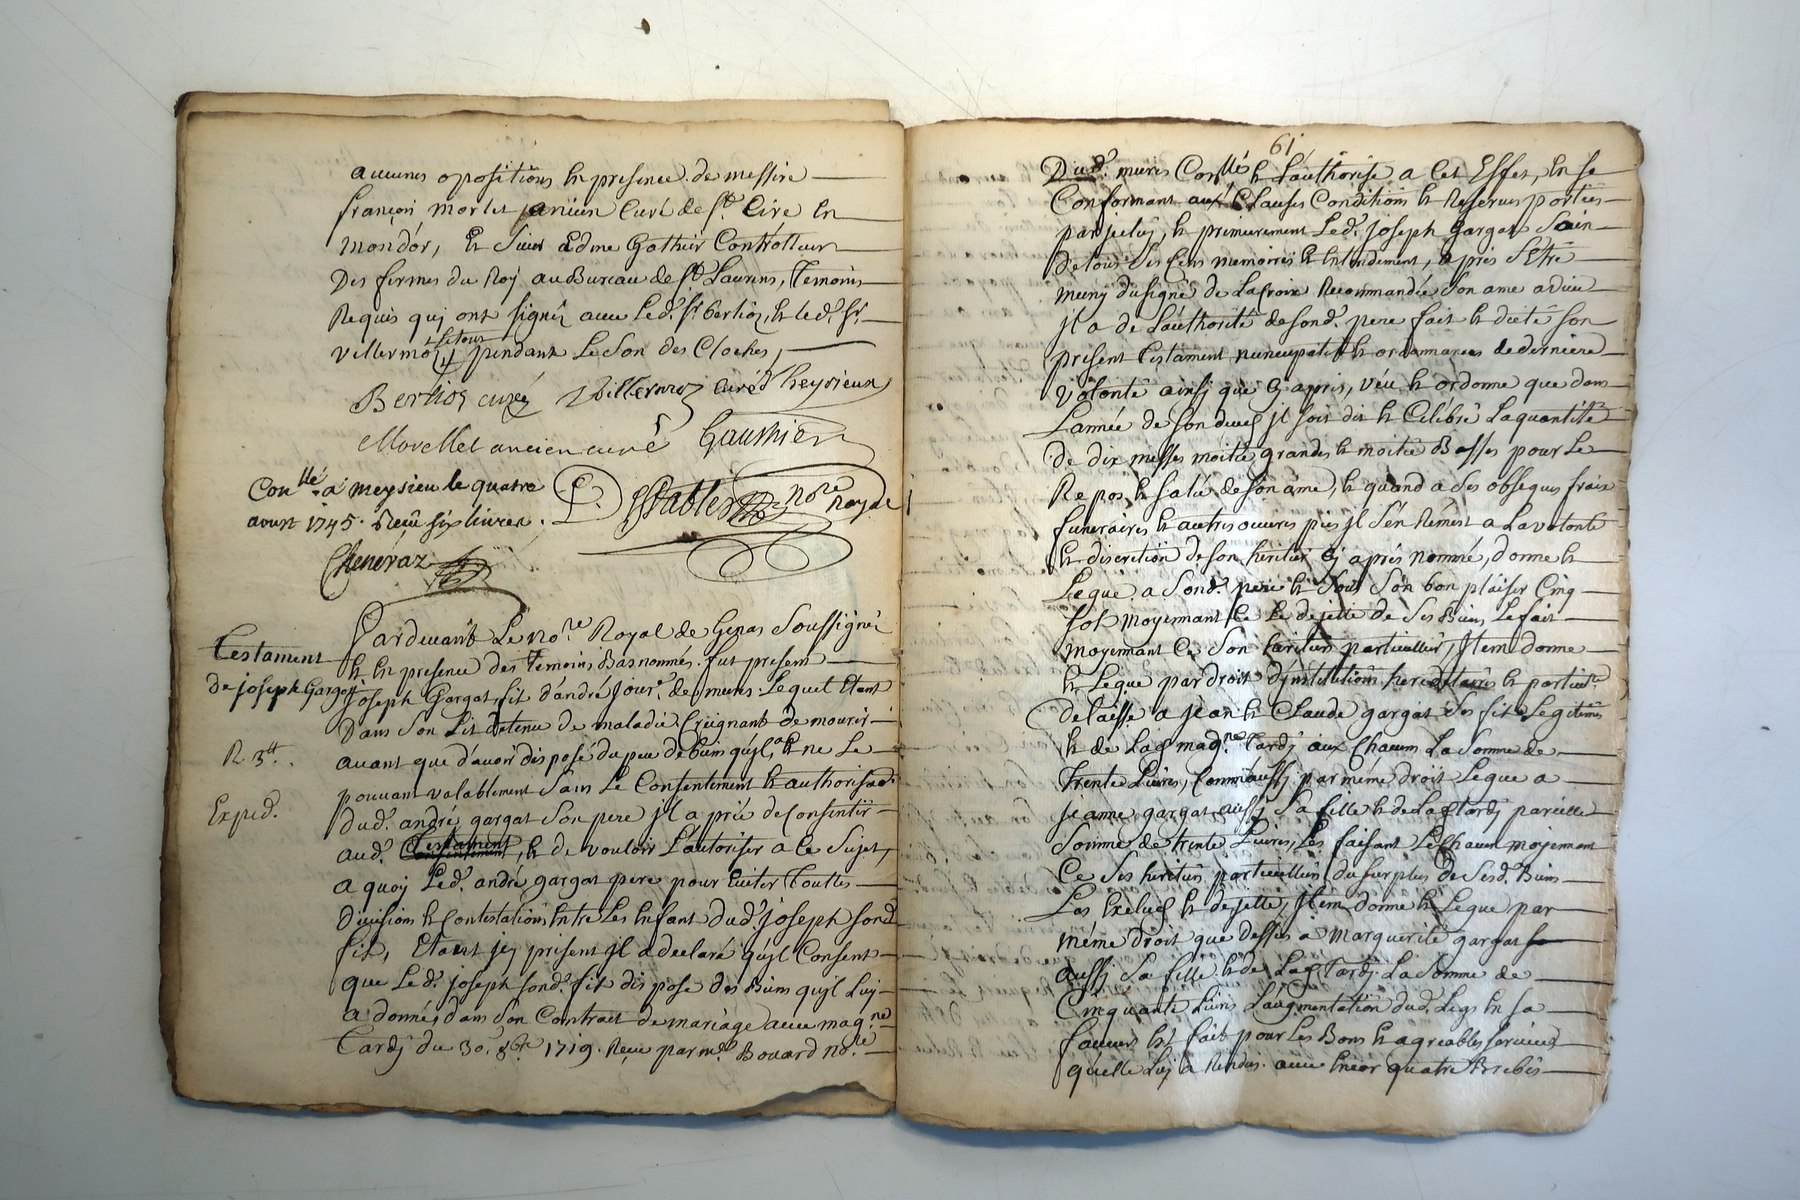 aucunes opositions et presence de messire
françois morlet ancien curé de st. Cire en
mondór, et sieur edme Gothier Contrôlleur
Des fermes du Roy au Bureau de st. Laurens, Temoins
Requis quj ont signéz avec led. sr. berlioz, et led. sr.
villermoz, pendant Le Son des Cloches,
Berlioz curé Villermoz curé d'heyrieux
Morellet ancien curé Gauthier
Conllé. a meysieu le quatre
aoust 1745. Reçû six livres.
nore royal
Chenévaz
Testament
De joseph Gargat
R 3tt.
Exped.
Pardevant Le nore. Royal de Genas Soussigné
et en presence des Temoins Basnommés. fut present
joseph Gargat fit d'andré jourr. de mures. Lequel Etant
Dans Son Lit detenu de maladie Creignant de mourir
avant que d'avoir disposé du peu de biens qu'jl a, et ne Le
pouvant valablement Sans Le Consentement et authorisaon
dud. andré gargat Son pere jl a prié de Consentir
aud. Testament, et de vouloir L'autoriser a Ce Sujet,
a quoy Led. andré gargat pere pour Eviter Touttes
Divisions et Contestations Entre Les Enfant dud. joseph Sond.
fit, Etant jcy present jl a declaré qu'jl Consent
que Led. joseph Sond. fit dispose des Biens qu'jl Luy
a donnés dans Son Contract de mariage avec magne.
Tardj du 30. 8bre 1719. Reçu par me. Bouard nore.
61
Dud. mures Conllé et L'authorise a Cet Effet, En se
Conformant aux Clauses Conditions et Reserves portées
par jceluy, et premierement Led. joseph Gargat Sain
De tous Ses Cens memoires et Entendement, après S'Etre
muny du signe de La Croix Recommandée Son ame a dieu
jl a de L'authorité de Sond. pere fait et dicté Son
present Testament nuncupatif et ordonnances de derniere
volonté ainsj que Cj après, veu et ordonne que dans
L'année de Son deces jl soit dit et Celebré La quantité
de dix messes moitié grandes et moitié Basses pour Le
Repos et Salut de Son ame, et quand a Ses obseques fraix
funeraires et autres œuvres pies jl S'en Remest a La volonté
et discretion de Son heritier Cj après nommé, donne et
Legue a Sond. pere et Sous Son bon plaisir Cinq
Sols moyennant Ce Le dejette de Ses Biens Le fait
moyennant Ce Son heritier particullier, jtem donne
et Legue par droit d'jnstitutions hereditaires et particre.
delaisse a jean et Claude gargat Ses fits Legitimes
et de Lad. magne. Tardj aux Chacun La Somme de
Trente Livres, Comm'aussj par même droit Legue a
jeanne gargat aussj Sa fille et de Lad. Tardj pareille
Somme de trente Livres, Les faisant Les Chacun moyennant
Ce Ses heritiers particulliers du surplus de Sesd. Biens
Les Exclues et dejette, jtem donne et Legue par
même droit que dessus a marguerite gargat
aussj Sa fille et de Lad. Tardj La Somme de
Cinquante Livres L'augmentation dud. Legs En Sa
faveur Est fait pour Les Bons et agreables services
qu'elle Luy a Rendus. avec Encor quatre Brebis